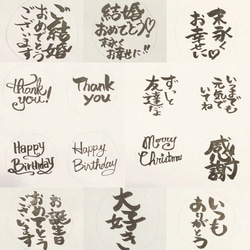 ご結婚
おめでとう
ございます
結婚
おめでとう♡
末永く
お幸せに!!
末永く
お幸せに♡
thank
you!
Thank
you
ずっと
友達だよ
いつまでも
元気で
いてね
Happy
Birthday
Happy
Birthday
Merry
Christmas
感謝
お誕生日
おめでとう
ございます
大好き
いつも
ありがとう